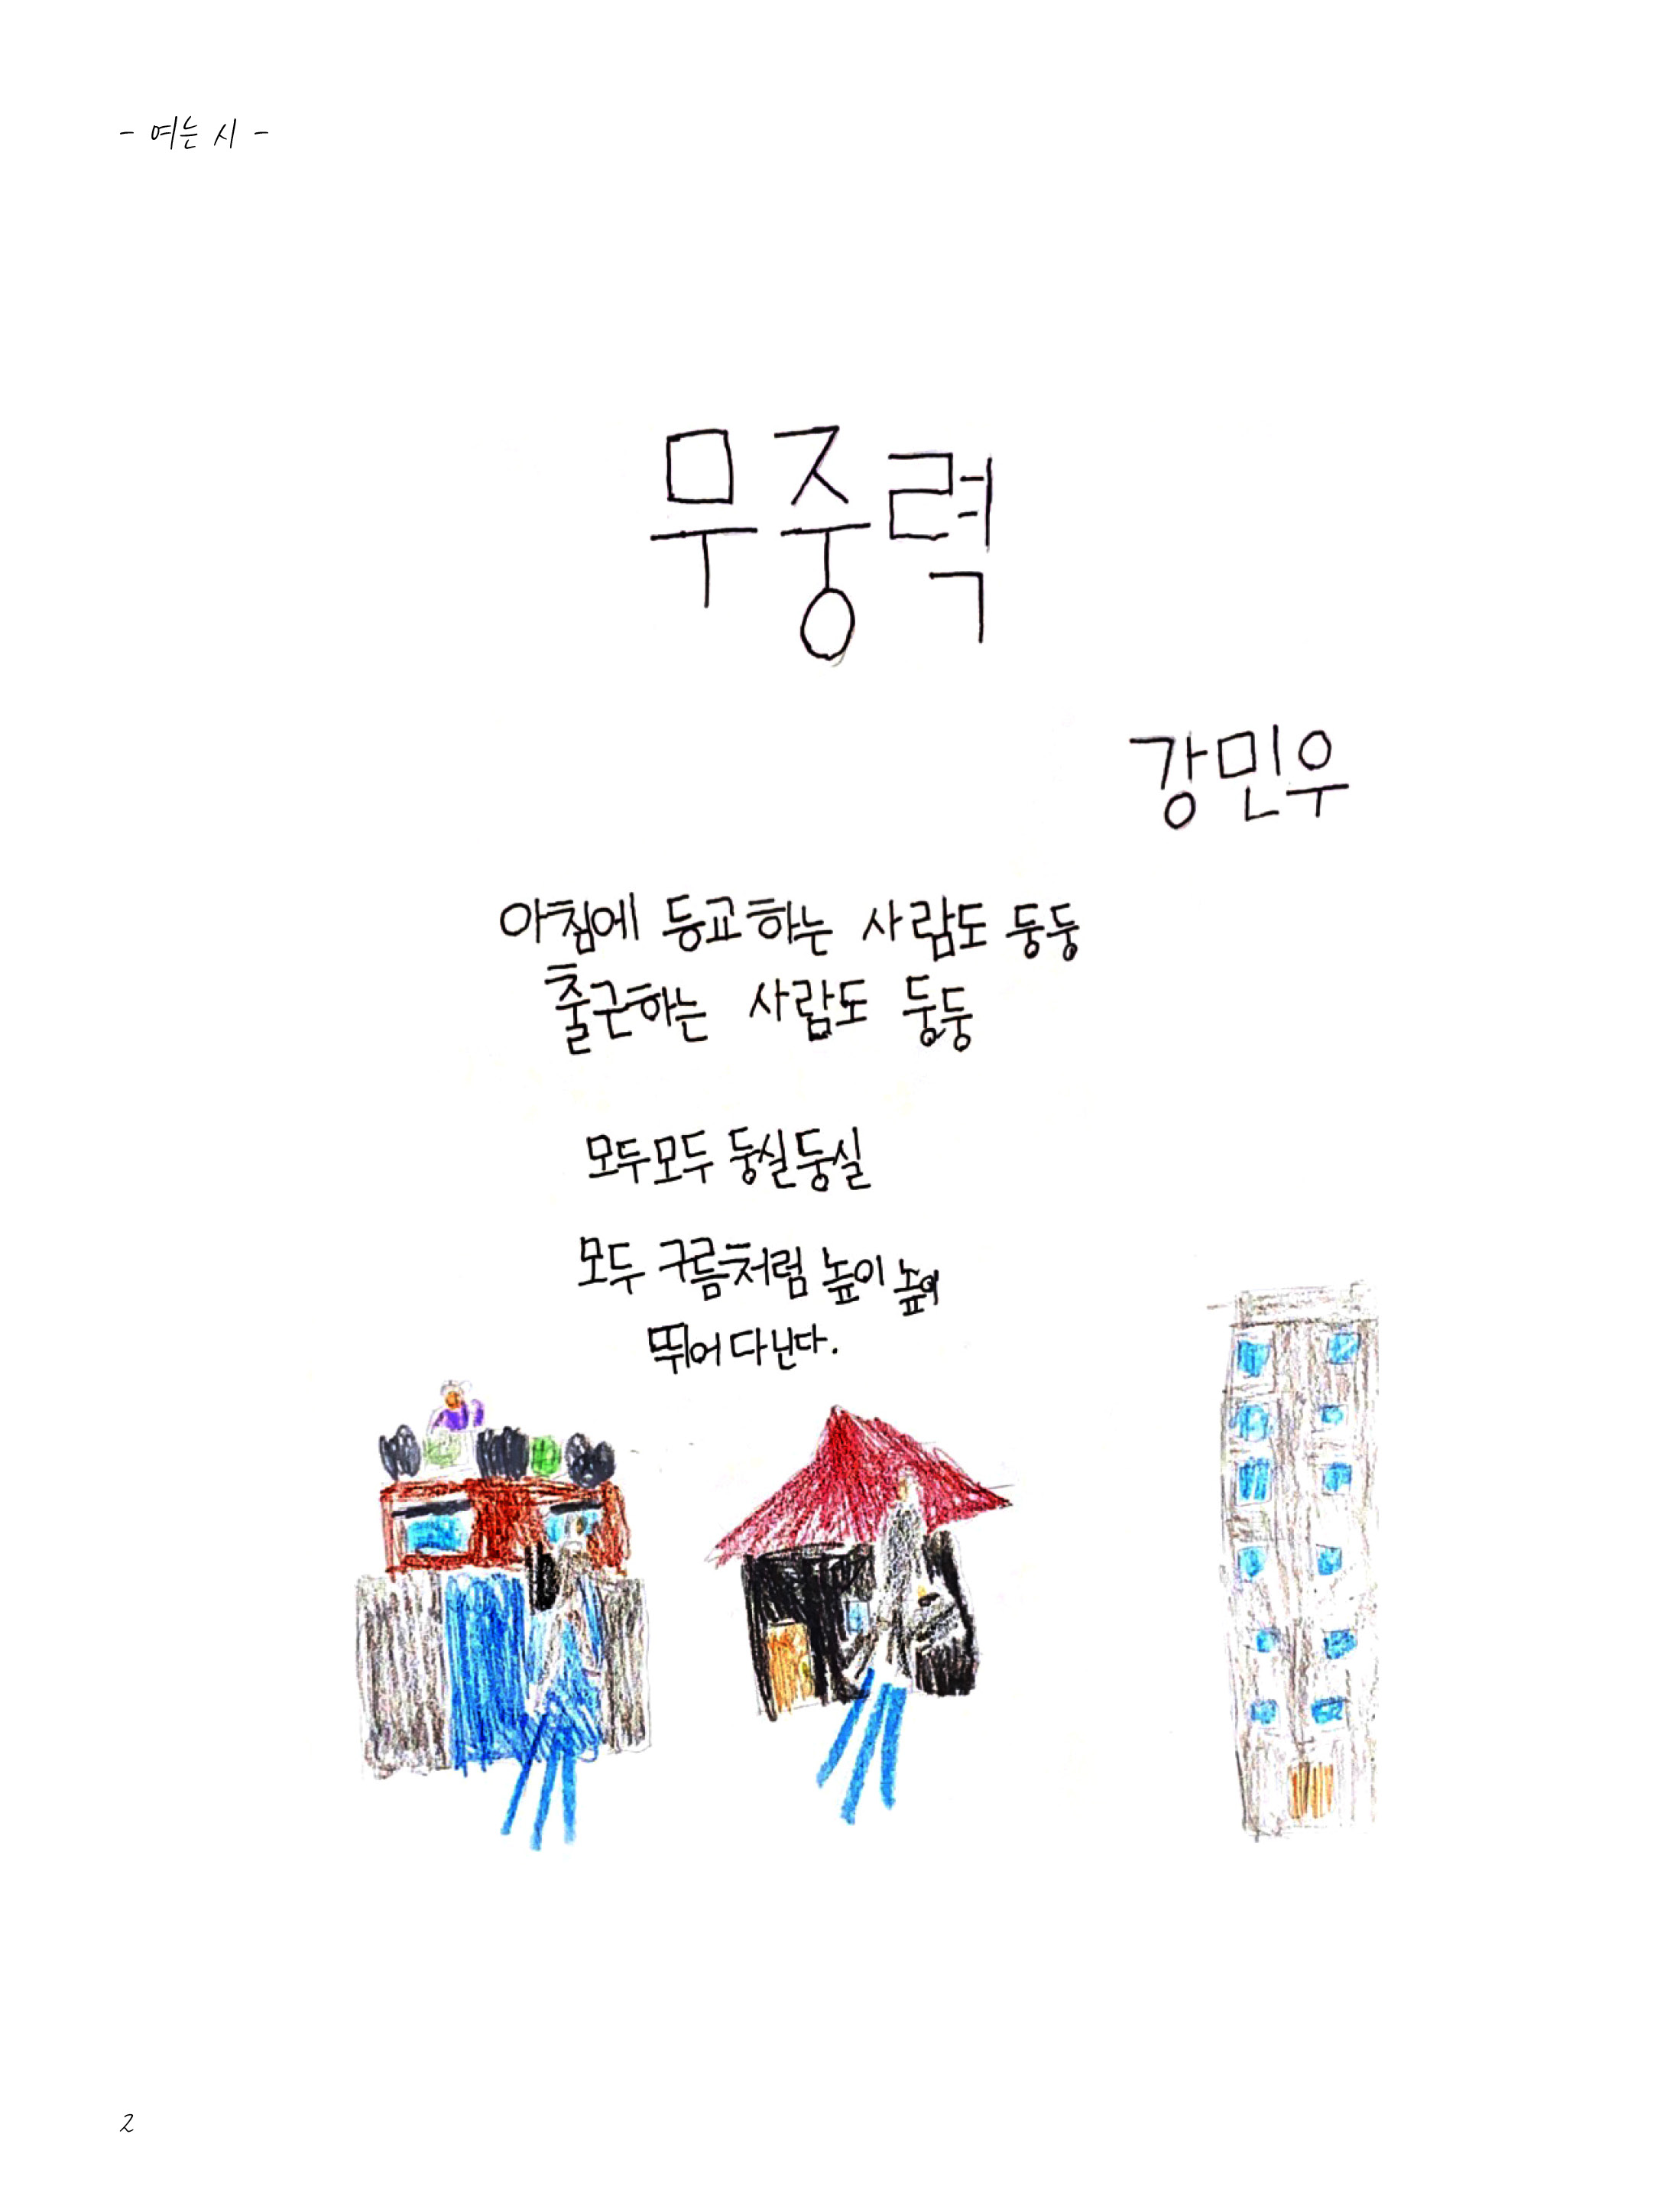 - 여는 시 -
무중력
강민우
아침에 등교하는 사람도 둥둥
출근하는 사람도 둥둥
모두모두 둥실둥실
모두 구름처럼 높이 높이
뛰어 다닌다.
2